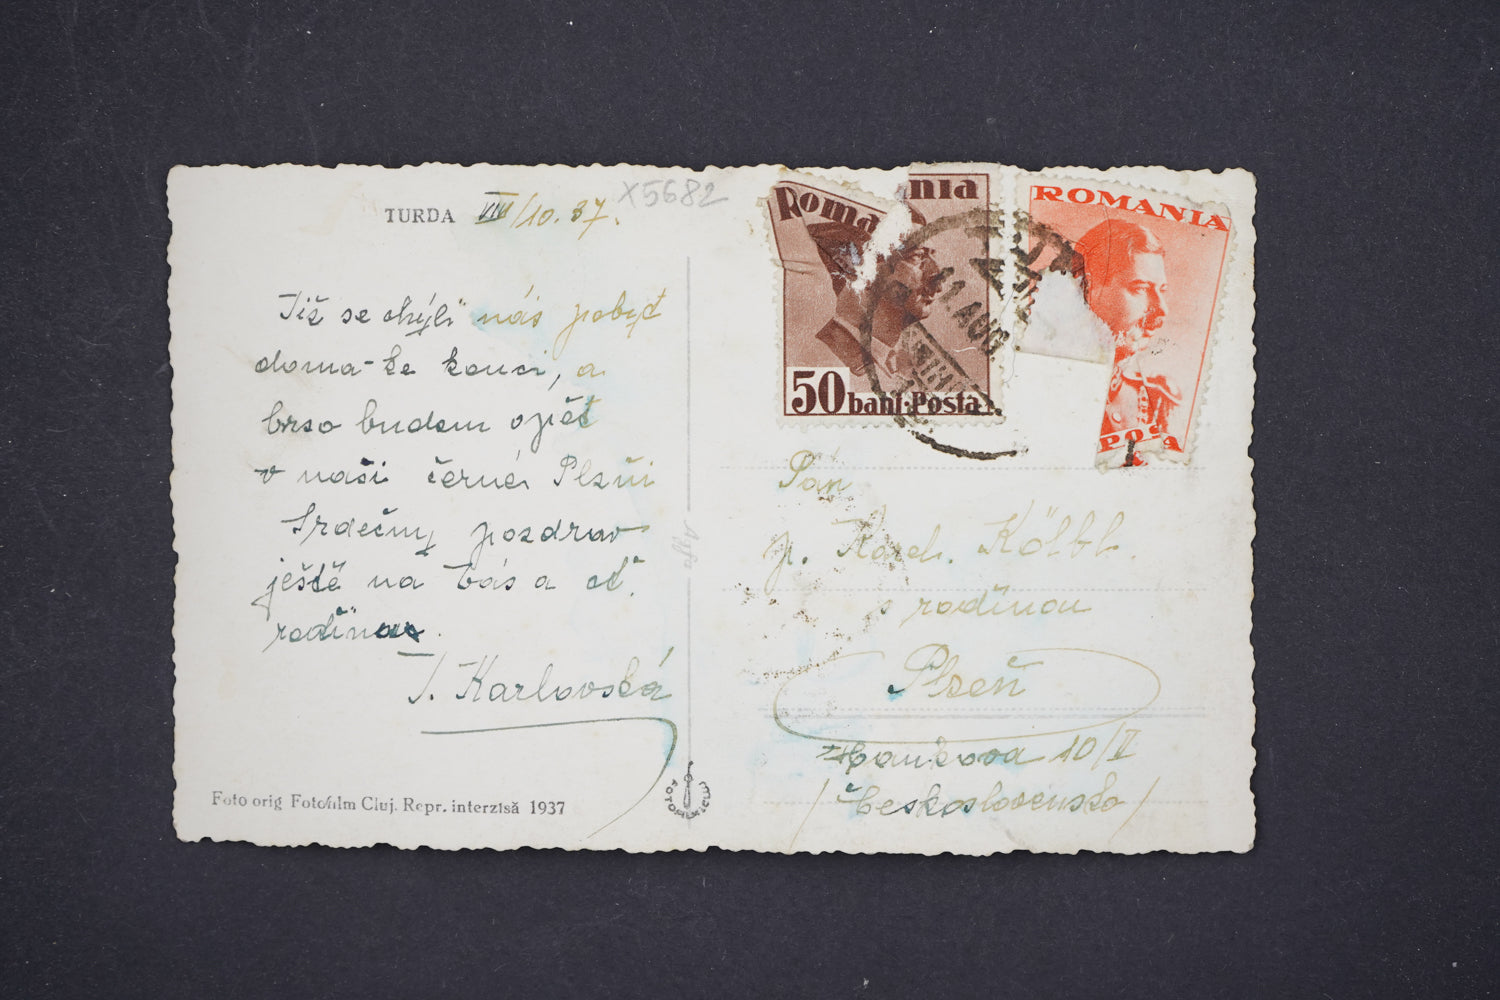 TURDA VIII/10.37.
X5682
Již se chýlí náš pobyt
doma ke konci, a
brzo budem opět
v naší černé Plzni
Srdečný pozdrav
ještě na Vás a ct.
rodinou.
J. Karlovská
Foto orig Fotofilm Cluj. Repr. interzisă 1937
FOTOFILM CLUJ
Agfa
Romania
50 bani·Posta
ROMANIA
POSTA
11 AUG
Pán
p. Karel. Kölbl.
s rodinou
Plzeň
10/II
/Československo/